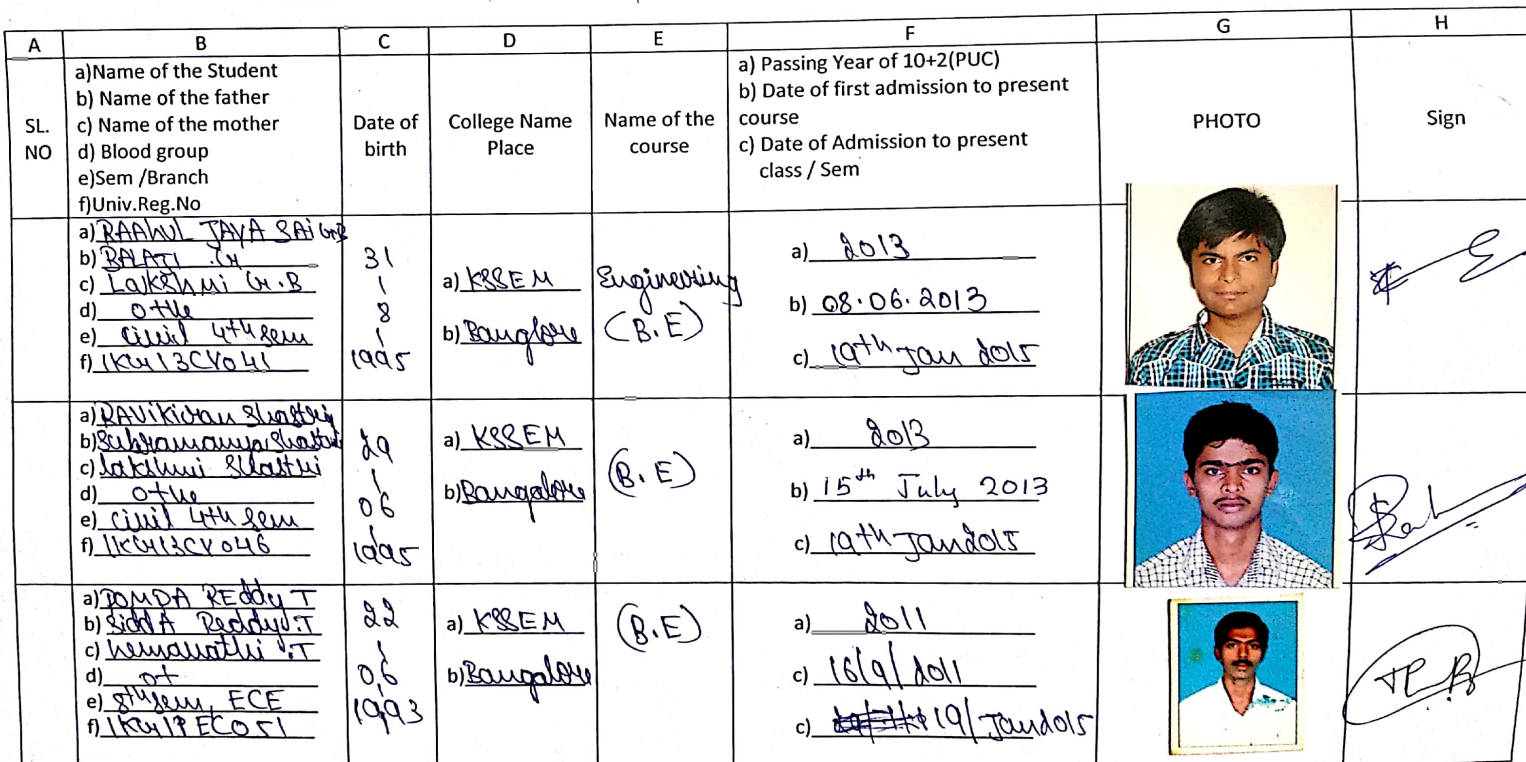 A B C D E F G H
SL. NO
a)Name of the Student
b) Name of the father
c) Name of the mother
d) Blood group
e)Sem /Branch
f)Univ.Reg.No
Date of birth
College Name Place
Name of the course
a) Passing Year of 10+2(PUC)
b) Date of first admission to present
course
c) Date of Admission to present
class / Sem
PHOTO
Sign
a) RAAHUL JAYA SAI G.B
b) BALAJI .G
c) Lakshmi G.B
d) O+ve
e) Civil 4th sem
f) 1KG13CV041
31
/
8
/
1995
a) KSSEM
b) Banglore
Engineering
(B.E)
a) 2013
b) 08.06.2013
c) 19th Jan 2015
a) RAVikiran Shastry
b) Subramanya Shastri
c) lakshmi Shastri
d) O+ve
e) Civil 4th sem
f) 1KG13CV046
29
/
06
/
1995
a) KSSEM
b) Bangalore
(B.E)
a) 2013
b) 15th July 2013
c) 19th Jan2015
a) REddy T
b) SiddA Reddy .T
c) hemavathi .T
d) O+
e) 8th sem, ECE
22
/
06
/
1993
a) KSSEM
b) Bangalore
(B.E)
a) 2011
c) 16/9/2011
c) 19/Jan2015